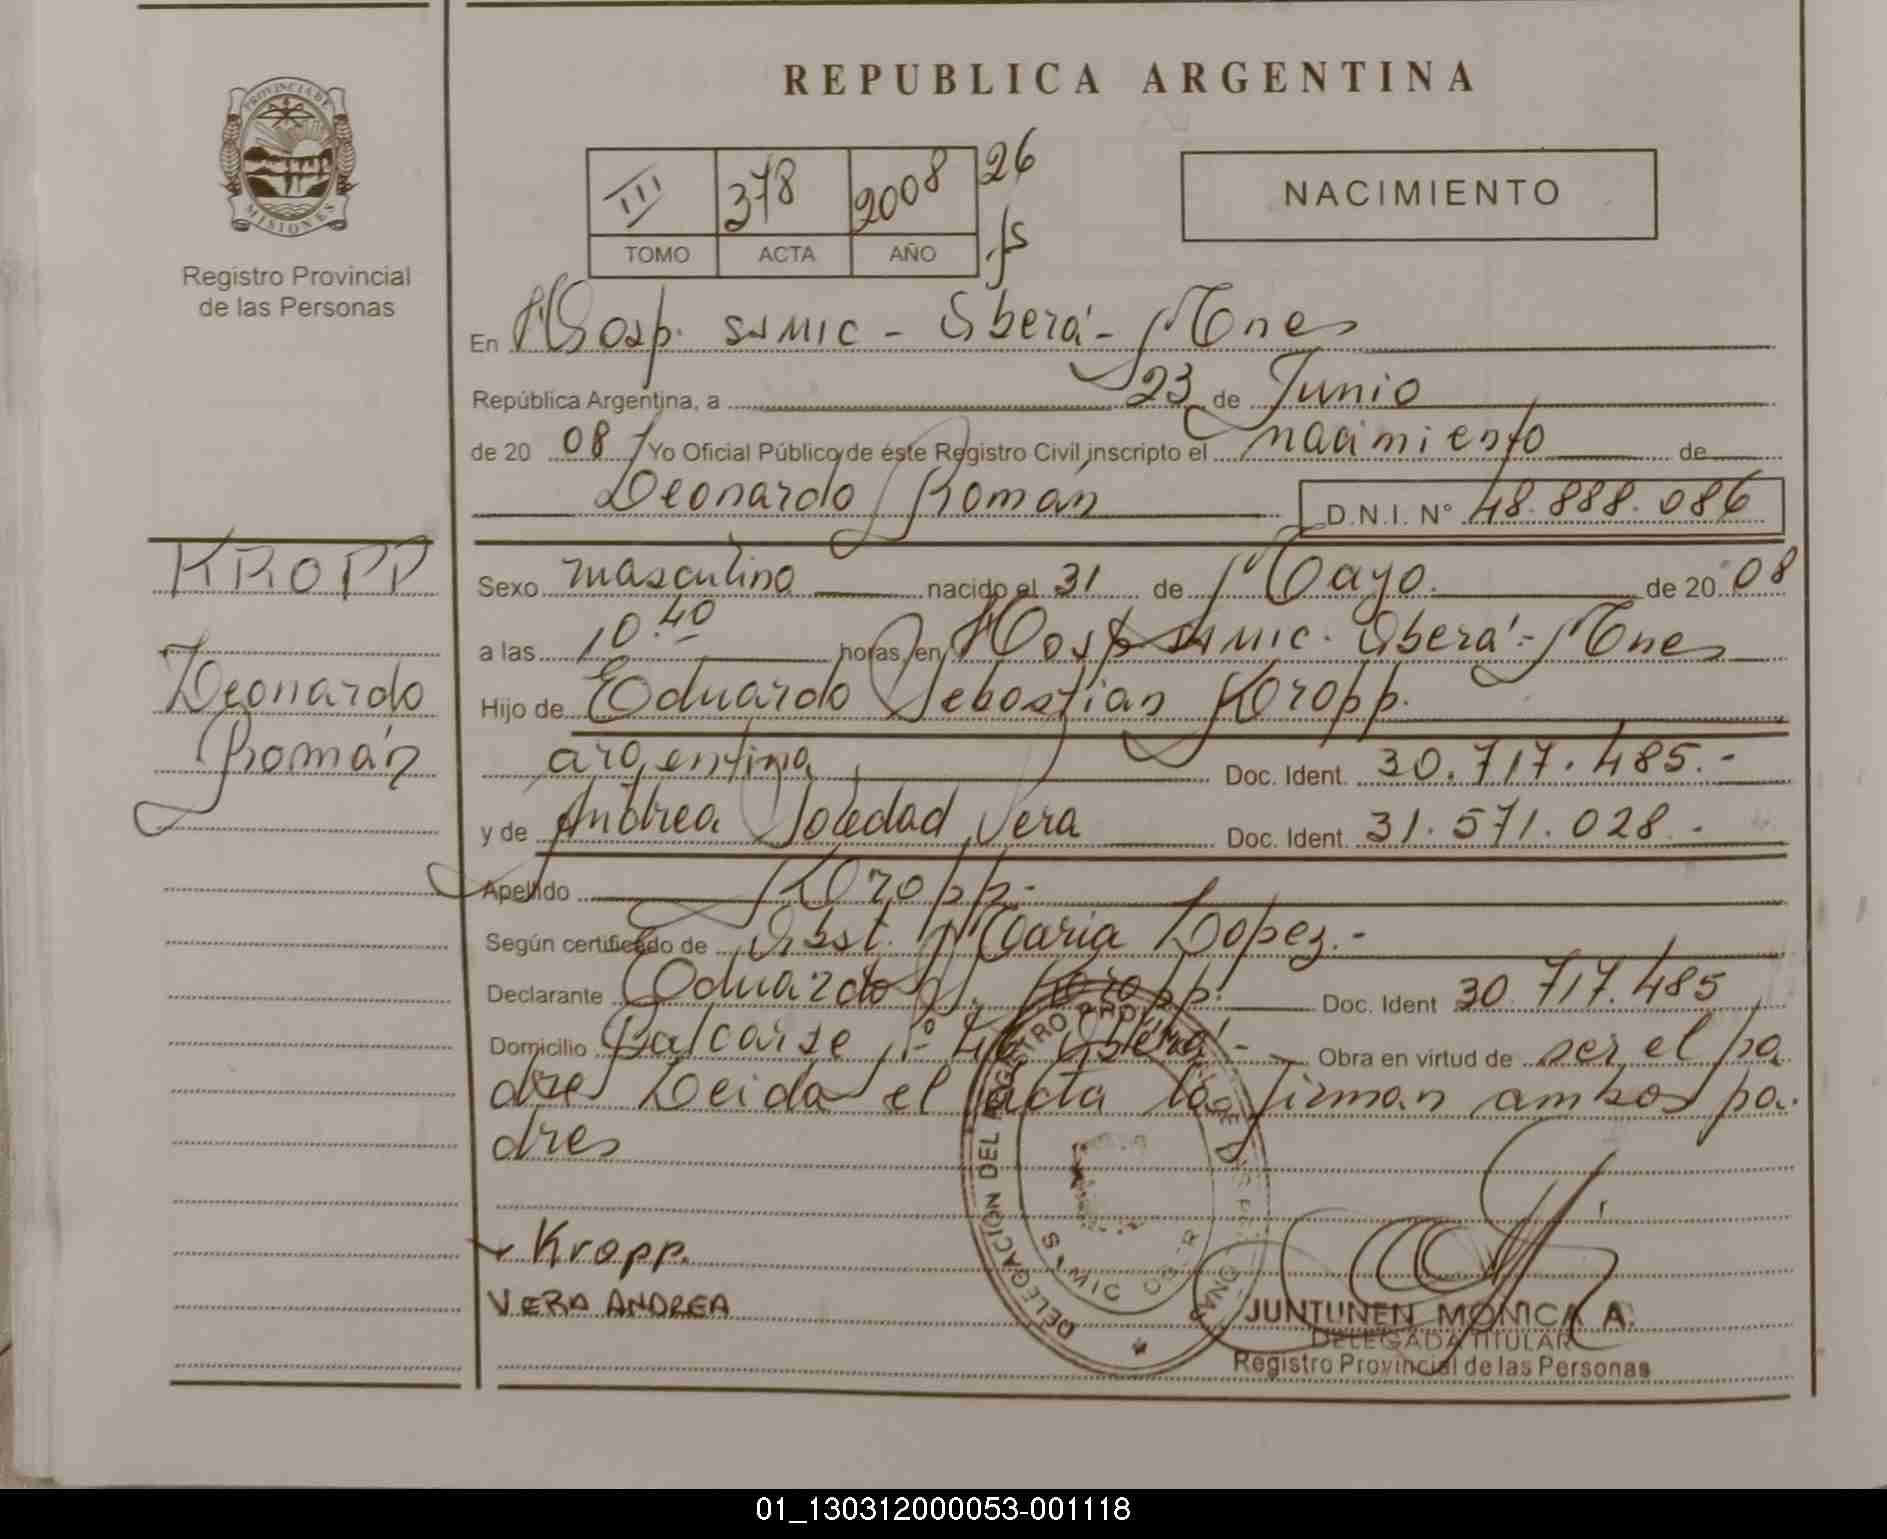 REPUBLICA ARGENTINA
PROVINCIA DE MISIONES
Registro Provincial
de las Personas
III 378 2008 26
TOMO ACTA AÑO fs
NACIMIENTO
En Hosp. SAMIC - Oberá - Mnes
República Argentina, a 23 de Junio
de 20 08 Yo Oficial Público de éste Registro Civil inscripto el nacimiento de
Leonardo Román D.N.I. Nº 48.888.086
KROPP
Leonardo
Román
Sexo masculino nacido el 31 de Mayo. de 20 08
a las 10.40 horas, en Hosp SAMIC. Oberá - Mnes
Hijo de Eduardo Sebastián Kropp.
argentina Doc. Ident. 30.717.485.-
y de Andrea Soledad Vera Doc. Ident. 31.571.028.-
Apellido Kropp.-
Según certificado de Obst. María Lopez.-
Declarante Eduardo S. Kropp. Doc. Ident 30.717.485
Domicilio Balcarse Oberá - Obra en virtud de ser el pa
dre Leida el acta la firman ambos pa.
dres
Kropp.
VERA ANDREA
DELEGACIÓN DEL REGISTRO
JUNTUNEN MONICA A.
DELEGADA TITULAR
Registro Provincial de las Personas
01_130312000053-001118